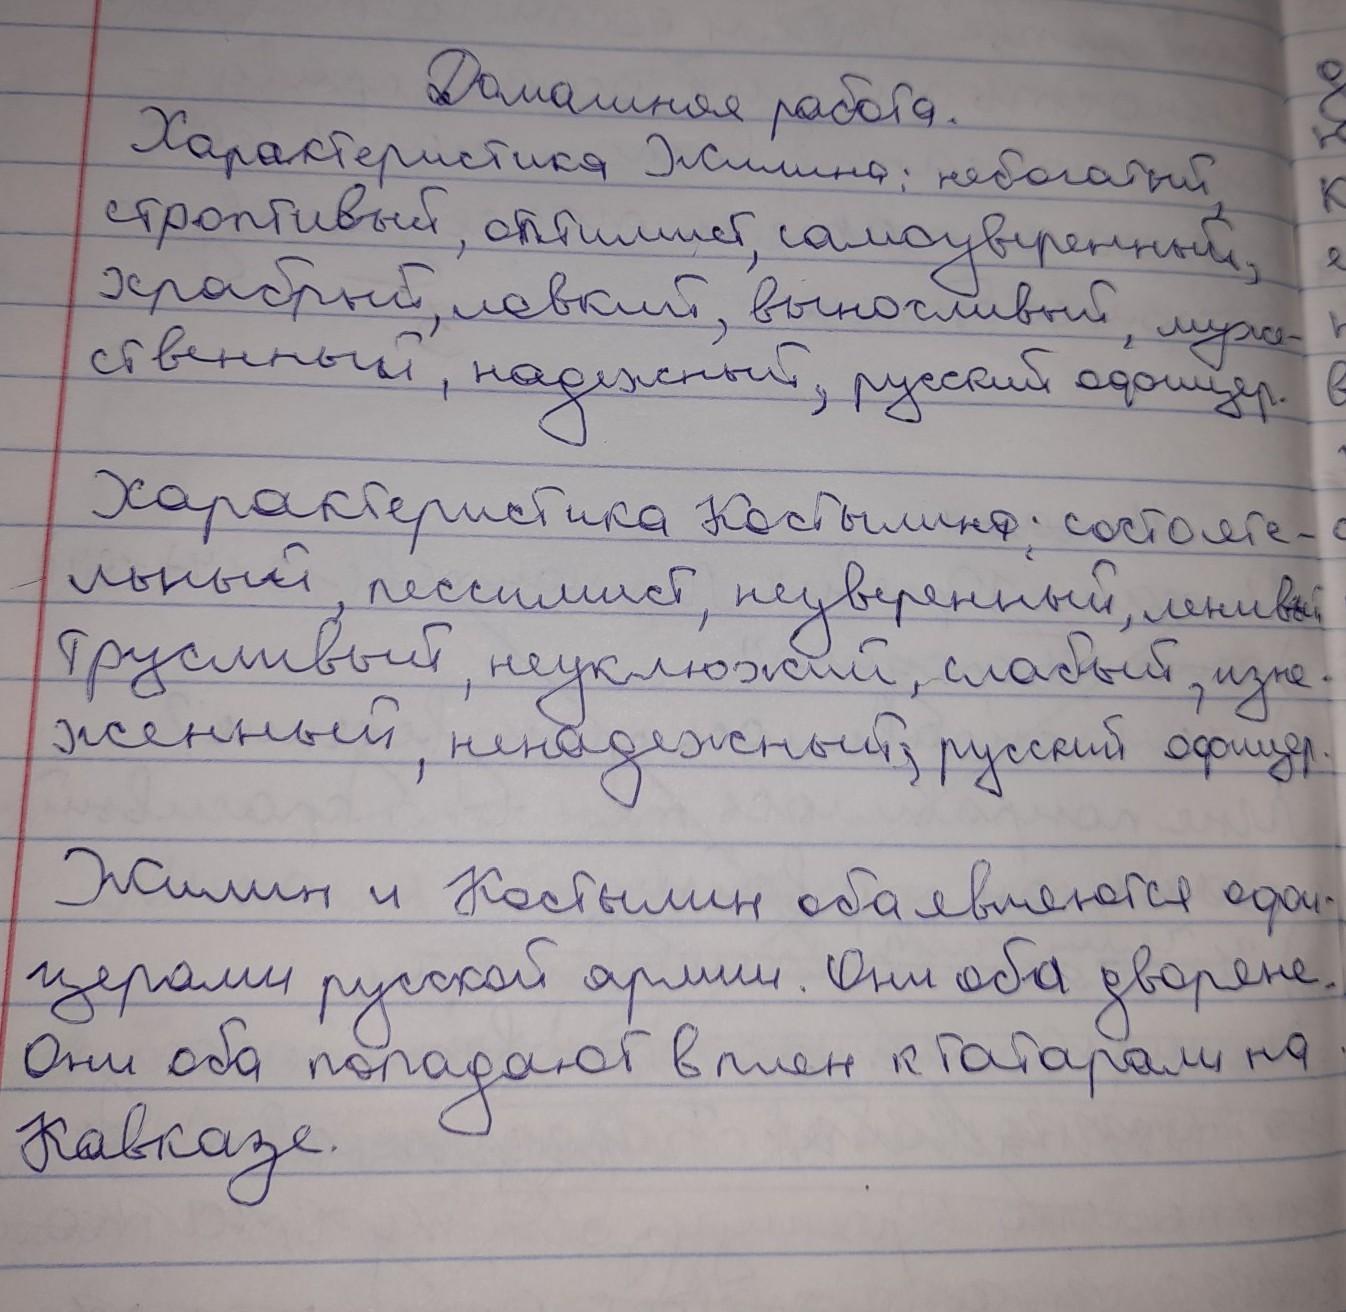 Домашняя работа.
Характеристика Жилина: небогатый,
строптивый, оптимист, самоуверенный,
храбрый, ловкий, выносливый, муже-
ственный, надежный, русский офицер.
Характеристика Костылина: состояте-
льный, пессимист, неуверенный, ленивый
трусливый, неуклюжий, слабый, изне-
женный, ненадежный, русский офицер.
Жилин и Костылин оба являются офи-
церами русской армии. Они оба дворяне.
Они оба попадают в плен к татарам на
Кавказе.